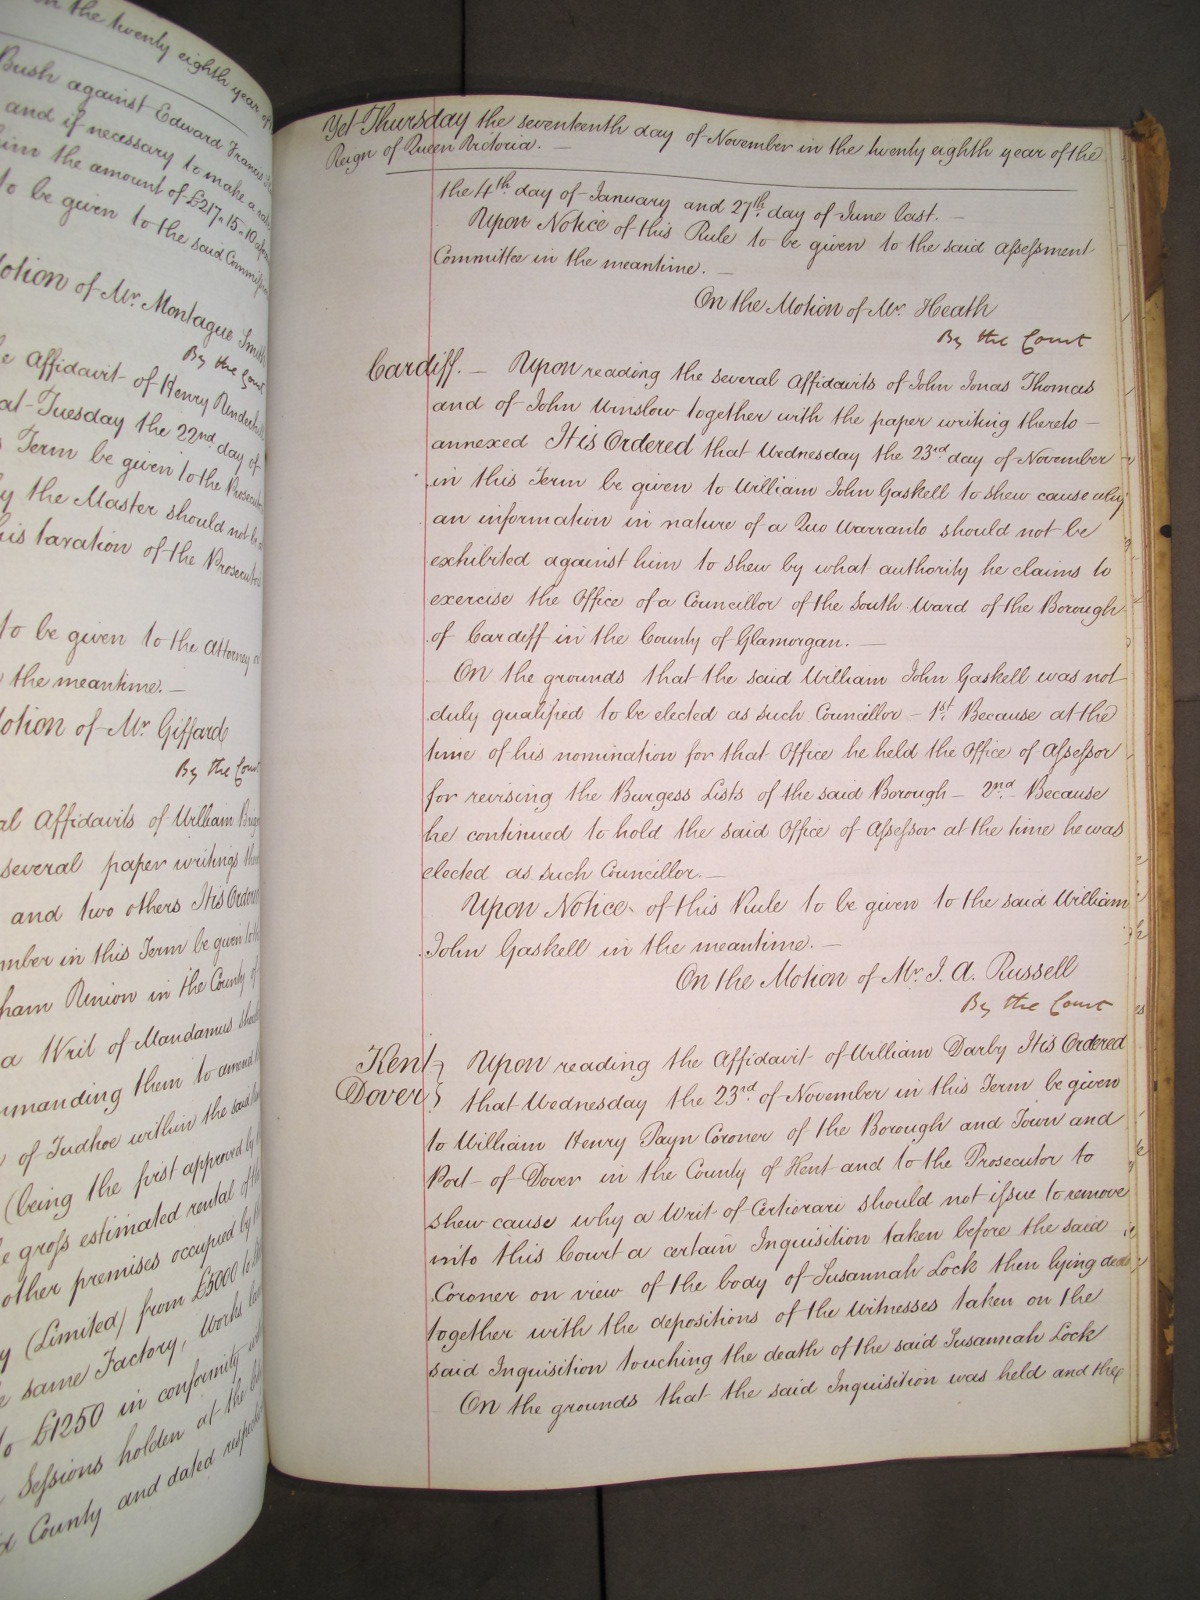 on the twenty eighth year of
Bush against Edward Francis
and if necessary to make a
him the amount of £217.15.10
to be given to the said
Motion of Mr. Montague Smith
By the Court
Affidavit of Henry
that Tuesday the 22nd. day of
Term be given to the Prosecutor
by the Master should not be
his taxation of the Prosecutors
to be given to the Attorney
the meantime. —
Motion of Mr Giffard
By the Court
Affidavits of William
several paper writings
and two others It is Ordered
in this Term be given to the
Union in the County of
a Writ of Mandamus
commanding them to amend
of Tudhoe within the said
(being the first approved by
gross estimated rental of the
other premises occupied by
(Limited) from £5000
same Factory, Works
to £1250 in conformity
Sessions holden at the
County and dated
Yet Thursday the seventeenth day of November in the twenty eighth year of the
Reign of Queen Victoria. —
the 4th. day of January and 27th. day of June last. —
Upon Notice of this Rule to be given to the said Assessment
Committee in the meantime. —
On the Motion of Mr. Heath
By the Court
Cardiff. — Upon reading the several Affidavits of John Jonas Thomas
and of John Winslow together with the paper writing thereto —
annexed It is Ordered that Wednesday the 23rd. day of November
in this Term be given to William John Gaskell to shew cause why
an information in nature of a Quo Warranto should not be
exhibited against him to shew by what authority he claims to
exercise the Office of a Councillor of the South Ward of the Borough
of Cardiff in the County of Glamorgan. —
On the grounds that the said William John Gaskell was not
duly qualified to be elected as such Councillor — 1st. Because at the
time of his nomination for that Office he held the Office of Assessor
for revising the Burgess Lists of the said Borough — 2nd. — Because
he continued to hold the said Office of Assessor at the time he was
elected as such Councillor. —
Upon Notice of this Rule to be given to the said William
John Gaskell in the meantime. —
On the Motion of Mr. J. A. Russell
By the Court
Kent } Upon reading the Affidavit of William Darby It is Ordered
Dover } that Wednesday the 23rd. of November in this Term be given
to William Henry Payn Coroner of the Borough and Town and
Port of Dover in the County of Kent and to the Prosecutor to
shew cause why a Writ of Certiorari should not issue to remove
into this Court a certain Inquisition taken before the said
Coroner on view of the body of Susannah Lock then lying dead
together with the depositions of the Witnesses taken on the
said Inquisition touching the death of the said Susannah Lock
On the grounds that the said Inquisition was held and the